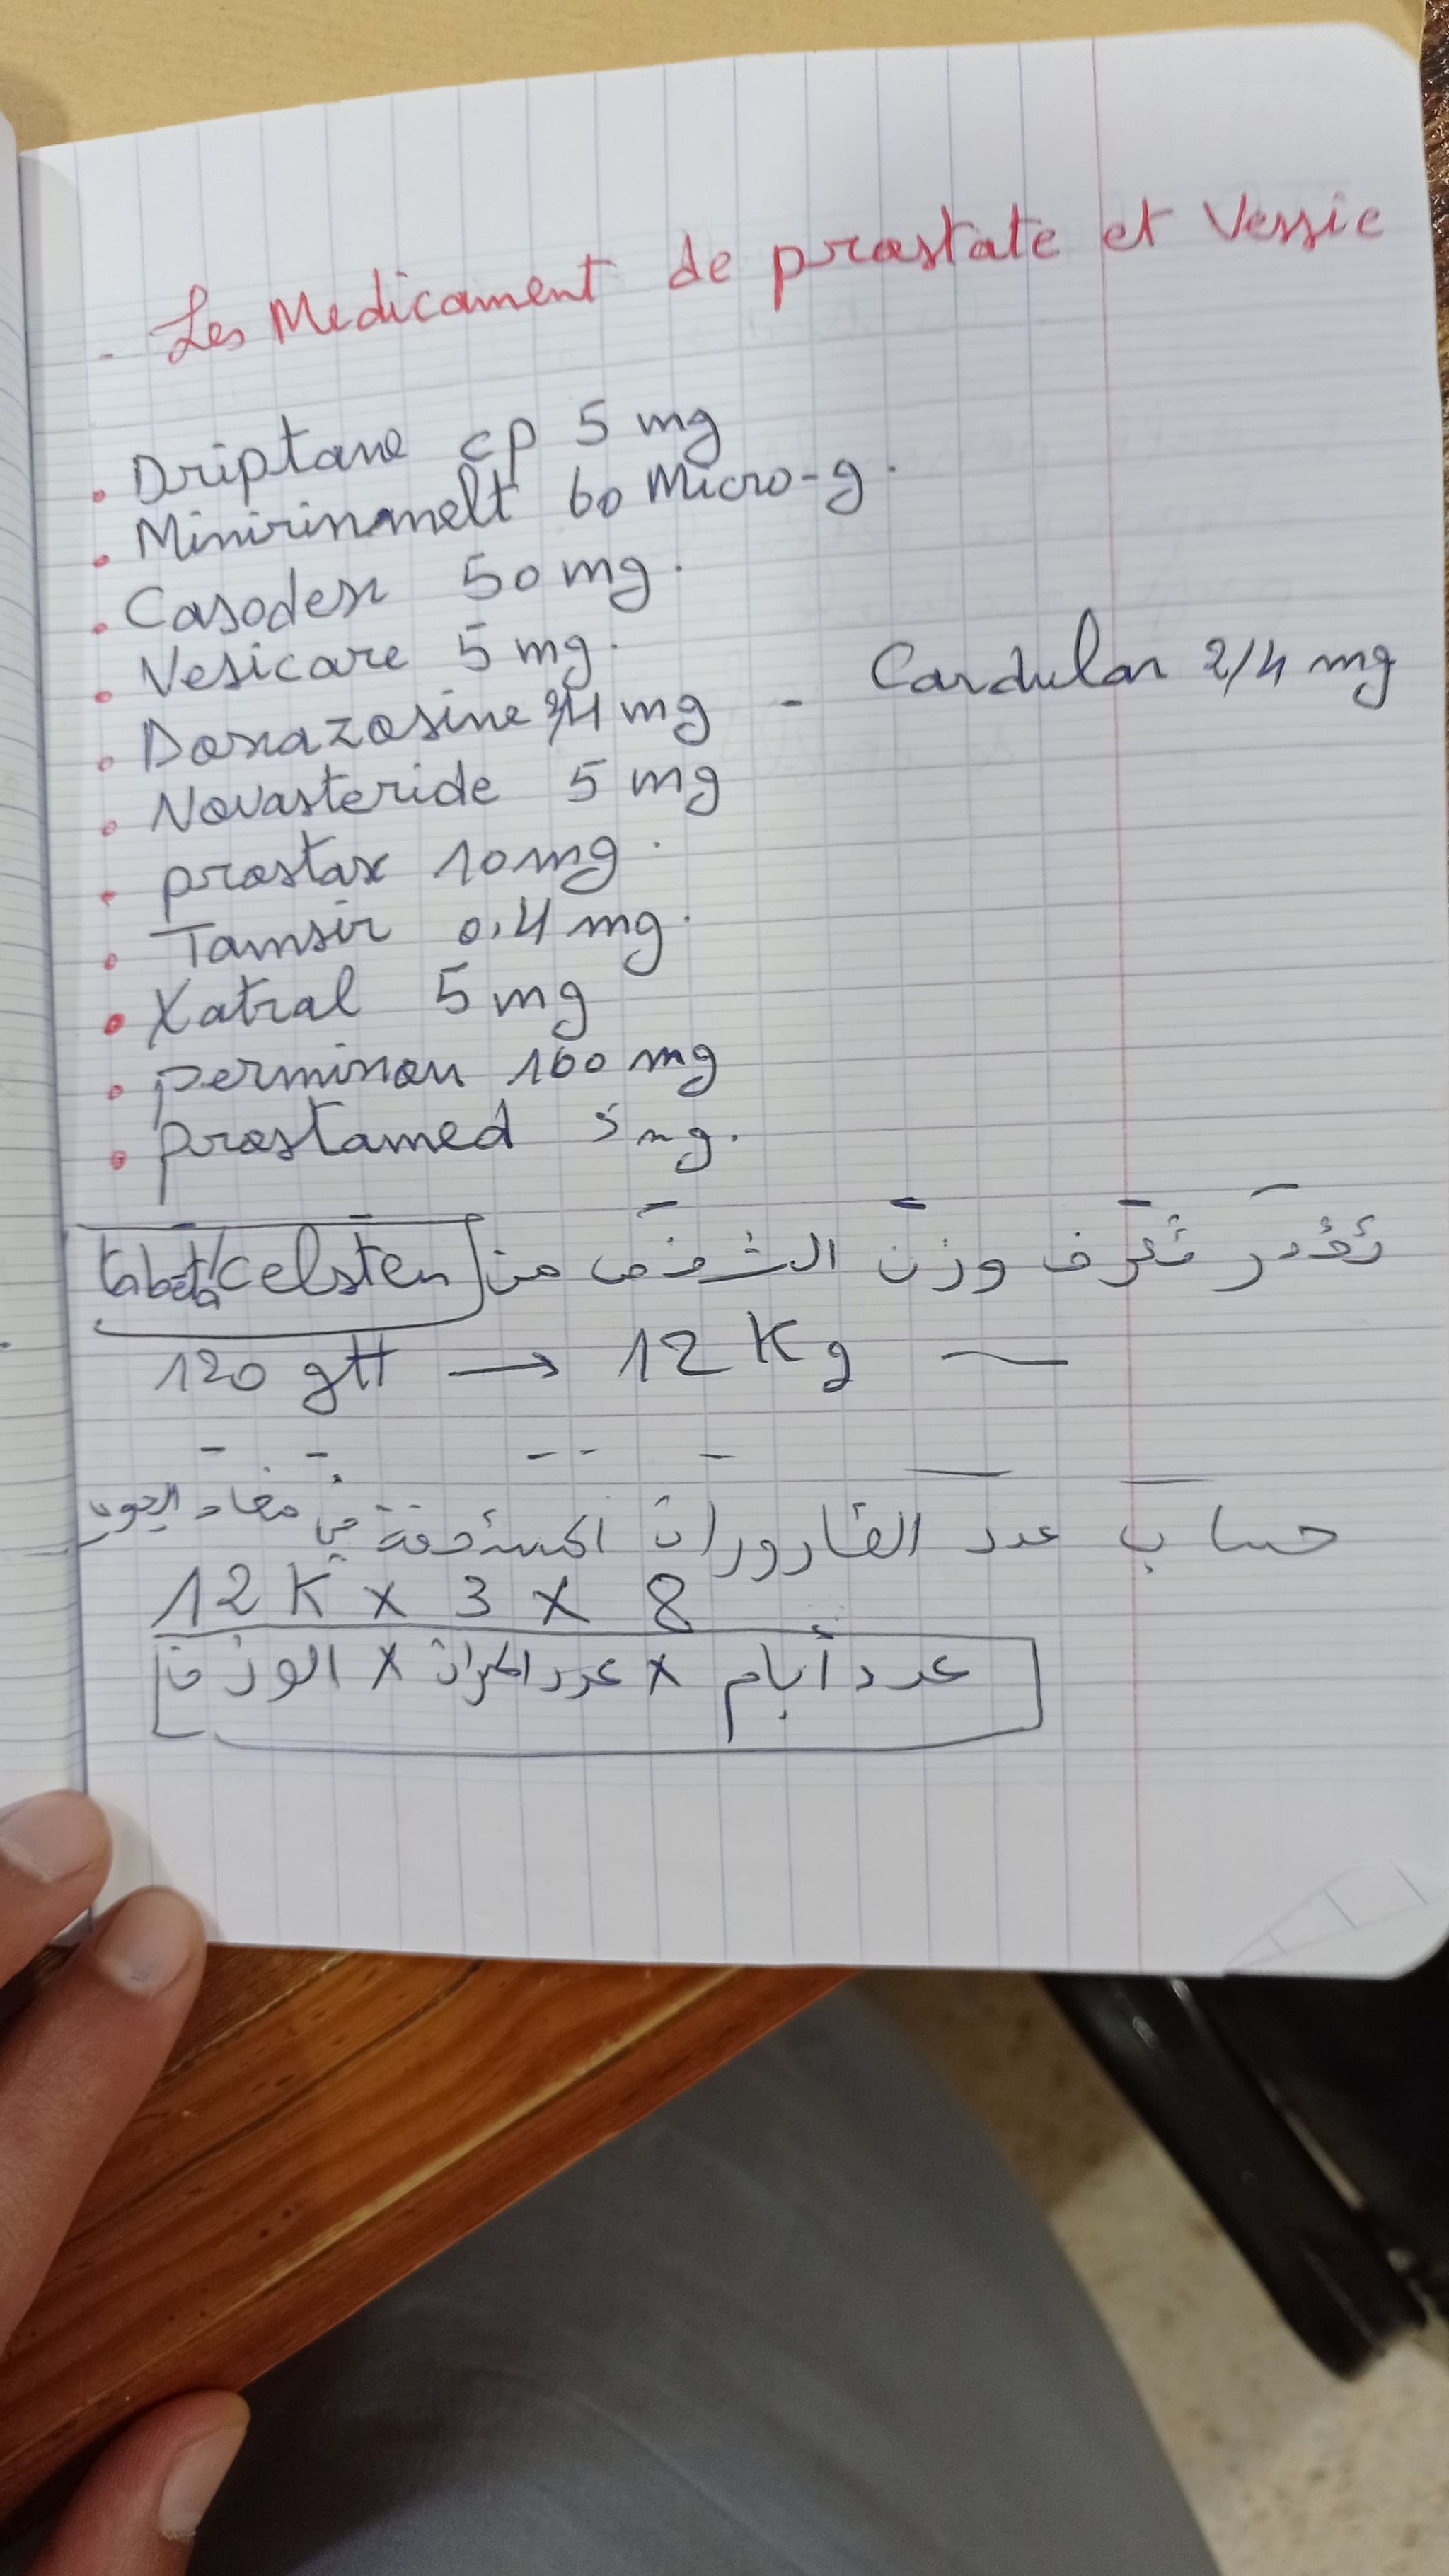 - Les Medicament de prostate et Vessie
. Driptane cp 5 mg
. Minirinmelt 60 Micro-g.
. Casodex 50 mg.
. Vesicare 5 mg.
. Doxazosine 2/4 mg - Cardular 2/4 mg
. Novasteride 5 mg
. prostax 10 mg.
. Tamsir 0.4 mg.
. Xatral 5 mg
. perminon 160 mg
. prostamed 5 mg.
تقدر تعرف وزن الشخص من celsten
120 gtt → 12 Kg
حساب عدد القارورات المستحقة في مضاد الحيوي
12 K x 3 x 8
عدد أيام x عدد المرات x الوزن